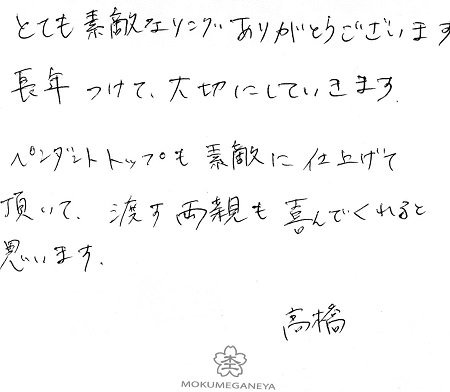 とても素敵なリングありがとうございます
長年つけて、大切にしていきます.
ペンダントトップも素敵に仕上げて
頂いて、渡す両親も喜んでくれると
思います.
高橋
MOKUMEGANEYA